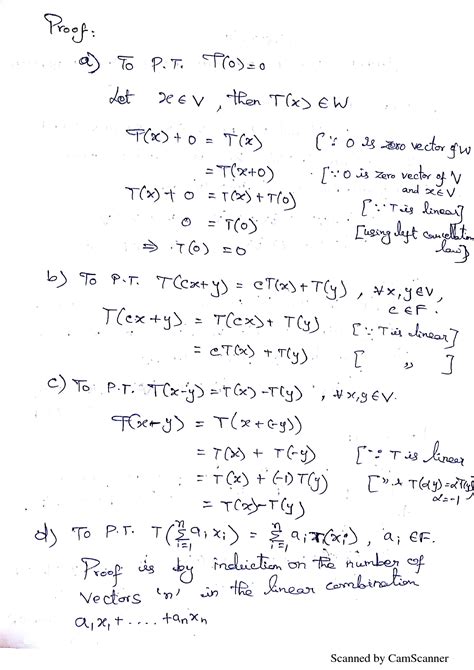 Proof:
a) To P.T. T(0)=0
Let x∈V, then T(x)∈W
T(x)+0 = T(x) [∵ 0 is zero vector of W
= T(x+0) [∵ 0 is zero vector of V
and x∈V
T(x)+0 = T(x)+T(0) [∵ T is linear]
0 = T(0) [using left cancellation
law]
⇒ T(0)=0
b) To P.T. T(cx+y) = cT(x)+T(y), ∀x,y∈V,
c∈F.
T(cx+y) = T(cx)+T(y) [∵ T is linear]
= cT(x)+T(y) [ " ]
c) To P.T. T(x-y)=T(x)-T(y), ∀x,y∈V.
T(x-y) = T(x+(-y))
= T(x)+T(-y) [∵ T is linear
= T(x)+(-1)T(y) [" & T(αy)=αT(y)
α=-1]
= T(x)-T(y)
d) To P.T. T(∑ᵢ₌₁ⁿ aᵢxᵢ) = ∑ᵢ₌₁ⁿ aᵢT(xᵢ), aᵢ∈F.
Proof is by induction on the number of
vectors 'n' in the linear combination
a₁x₁+.....+aₙxₙ
Scanned by CamScanner